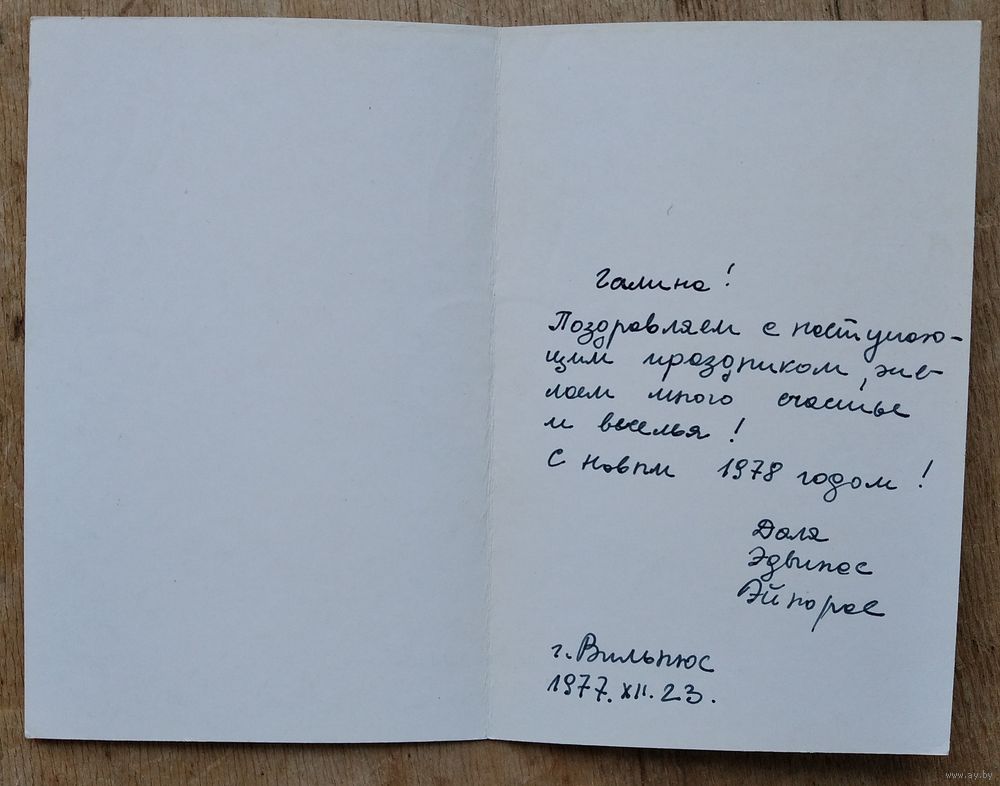 Галина!
Поздравляем с наступаю-
щим праздником, же-
лаем много счастье
и веселья!
С новым 1978 годом!
Даля
Эдвинас
Эйнорас
г. Вильнюс
1977.XII.23.
www.ay.by